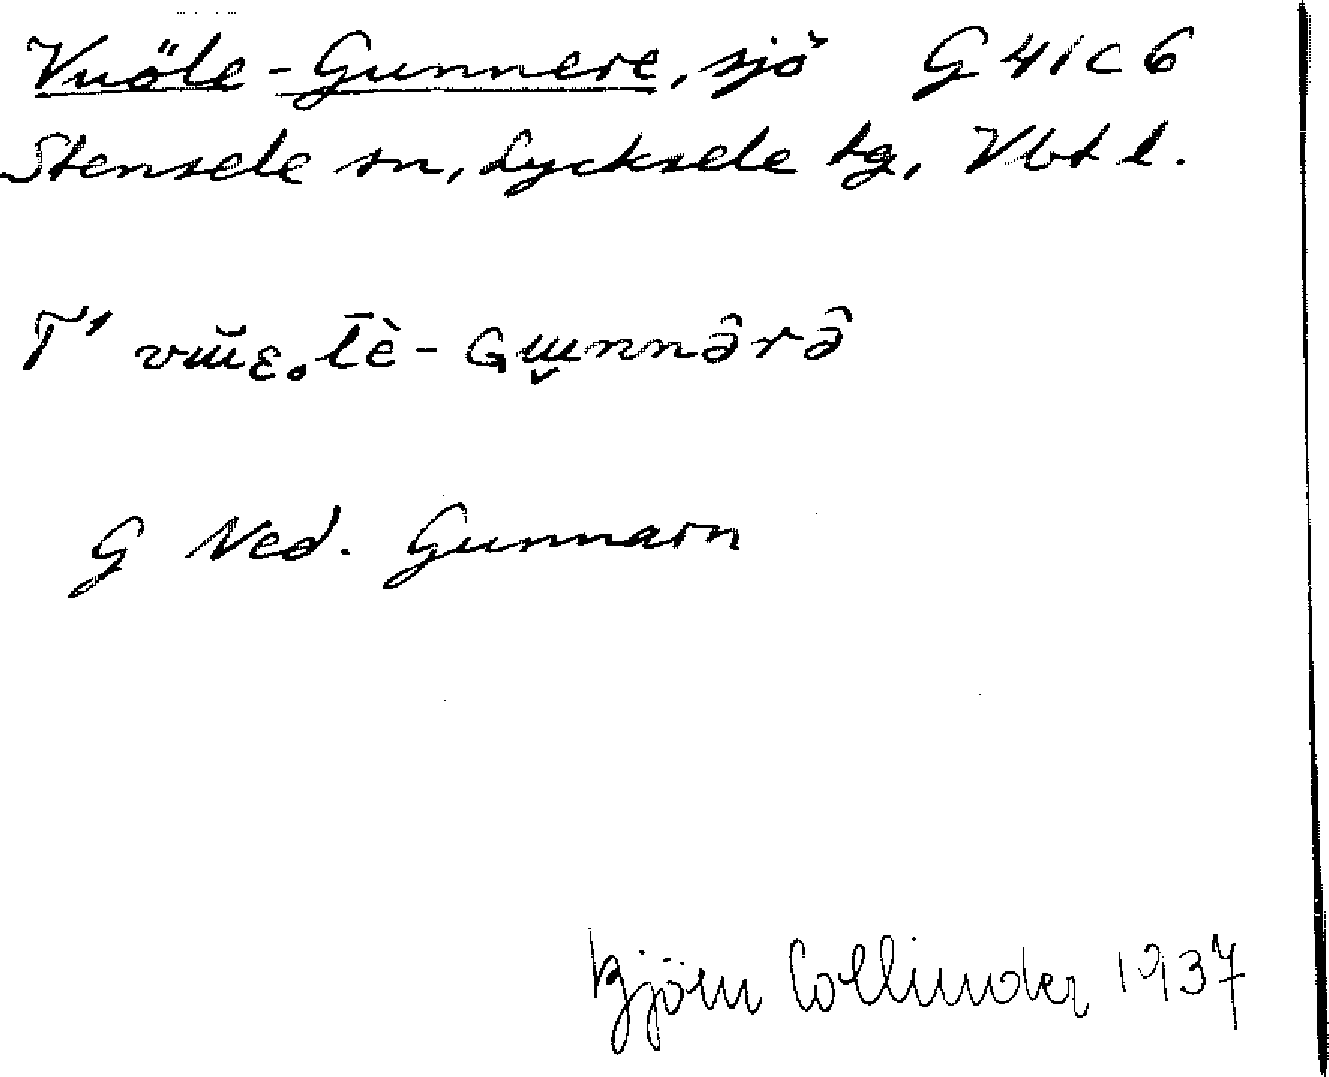 Vuöle-Gunnere, sjö G 41 c 6
Stensele sn, Lycksele tg, Vbt l.
T' vɯ̆ɛ˳l̄ḕ-Gɯ̬nnə̂rə̂
G Ned. Gunnarn
Björn Collinder 1937